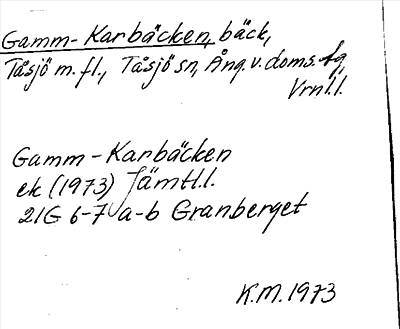 Gamm-Karbäcken, bäck,
Tåsjö m.fl., Tåsjö sn, Ång.v.doms.fg,
Vrnl.l.
Gamm-Karbäcken
ek (1973) Jämtl.l.
21G 6-7 a-b Granberget
K.M. 1973